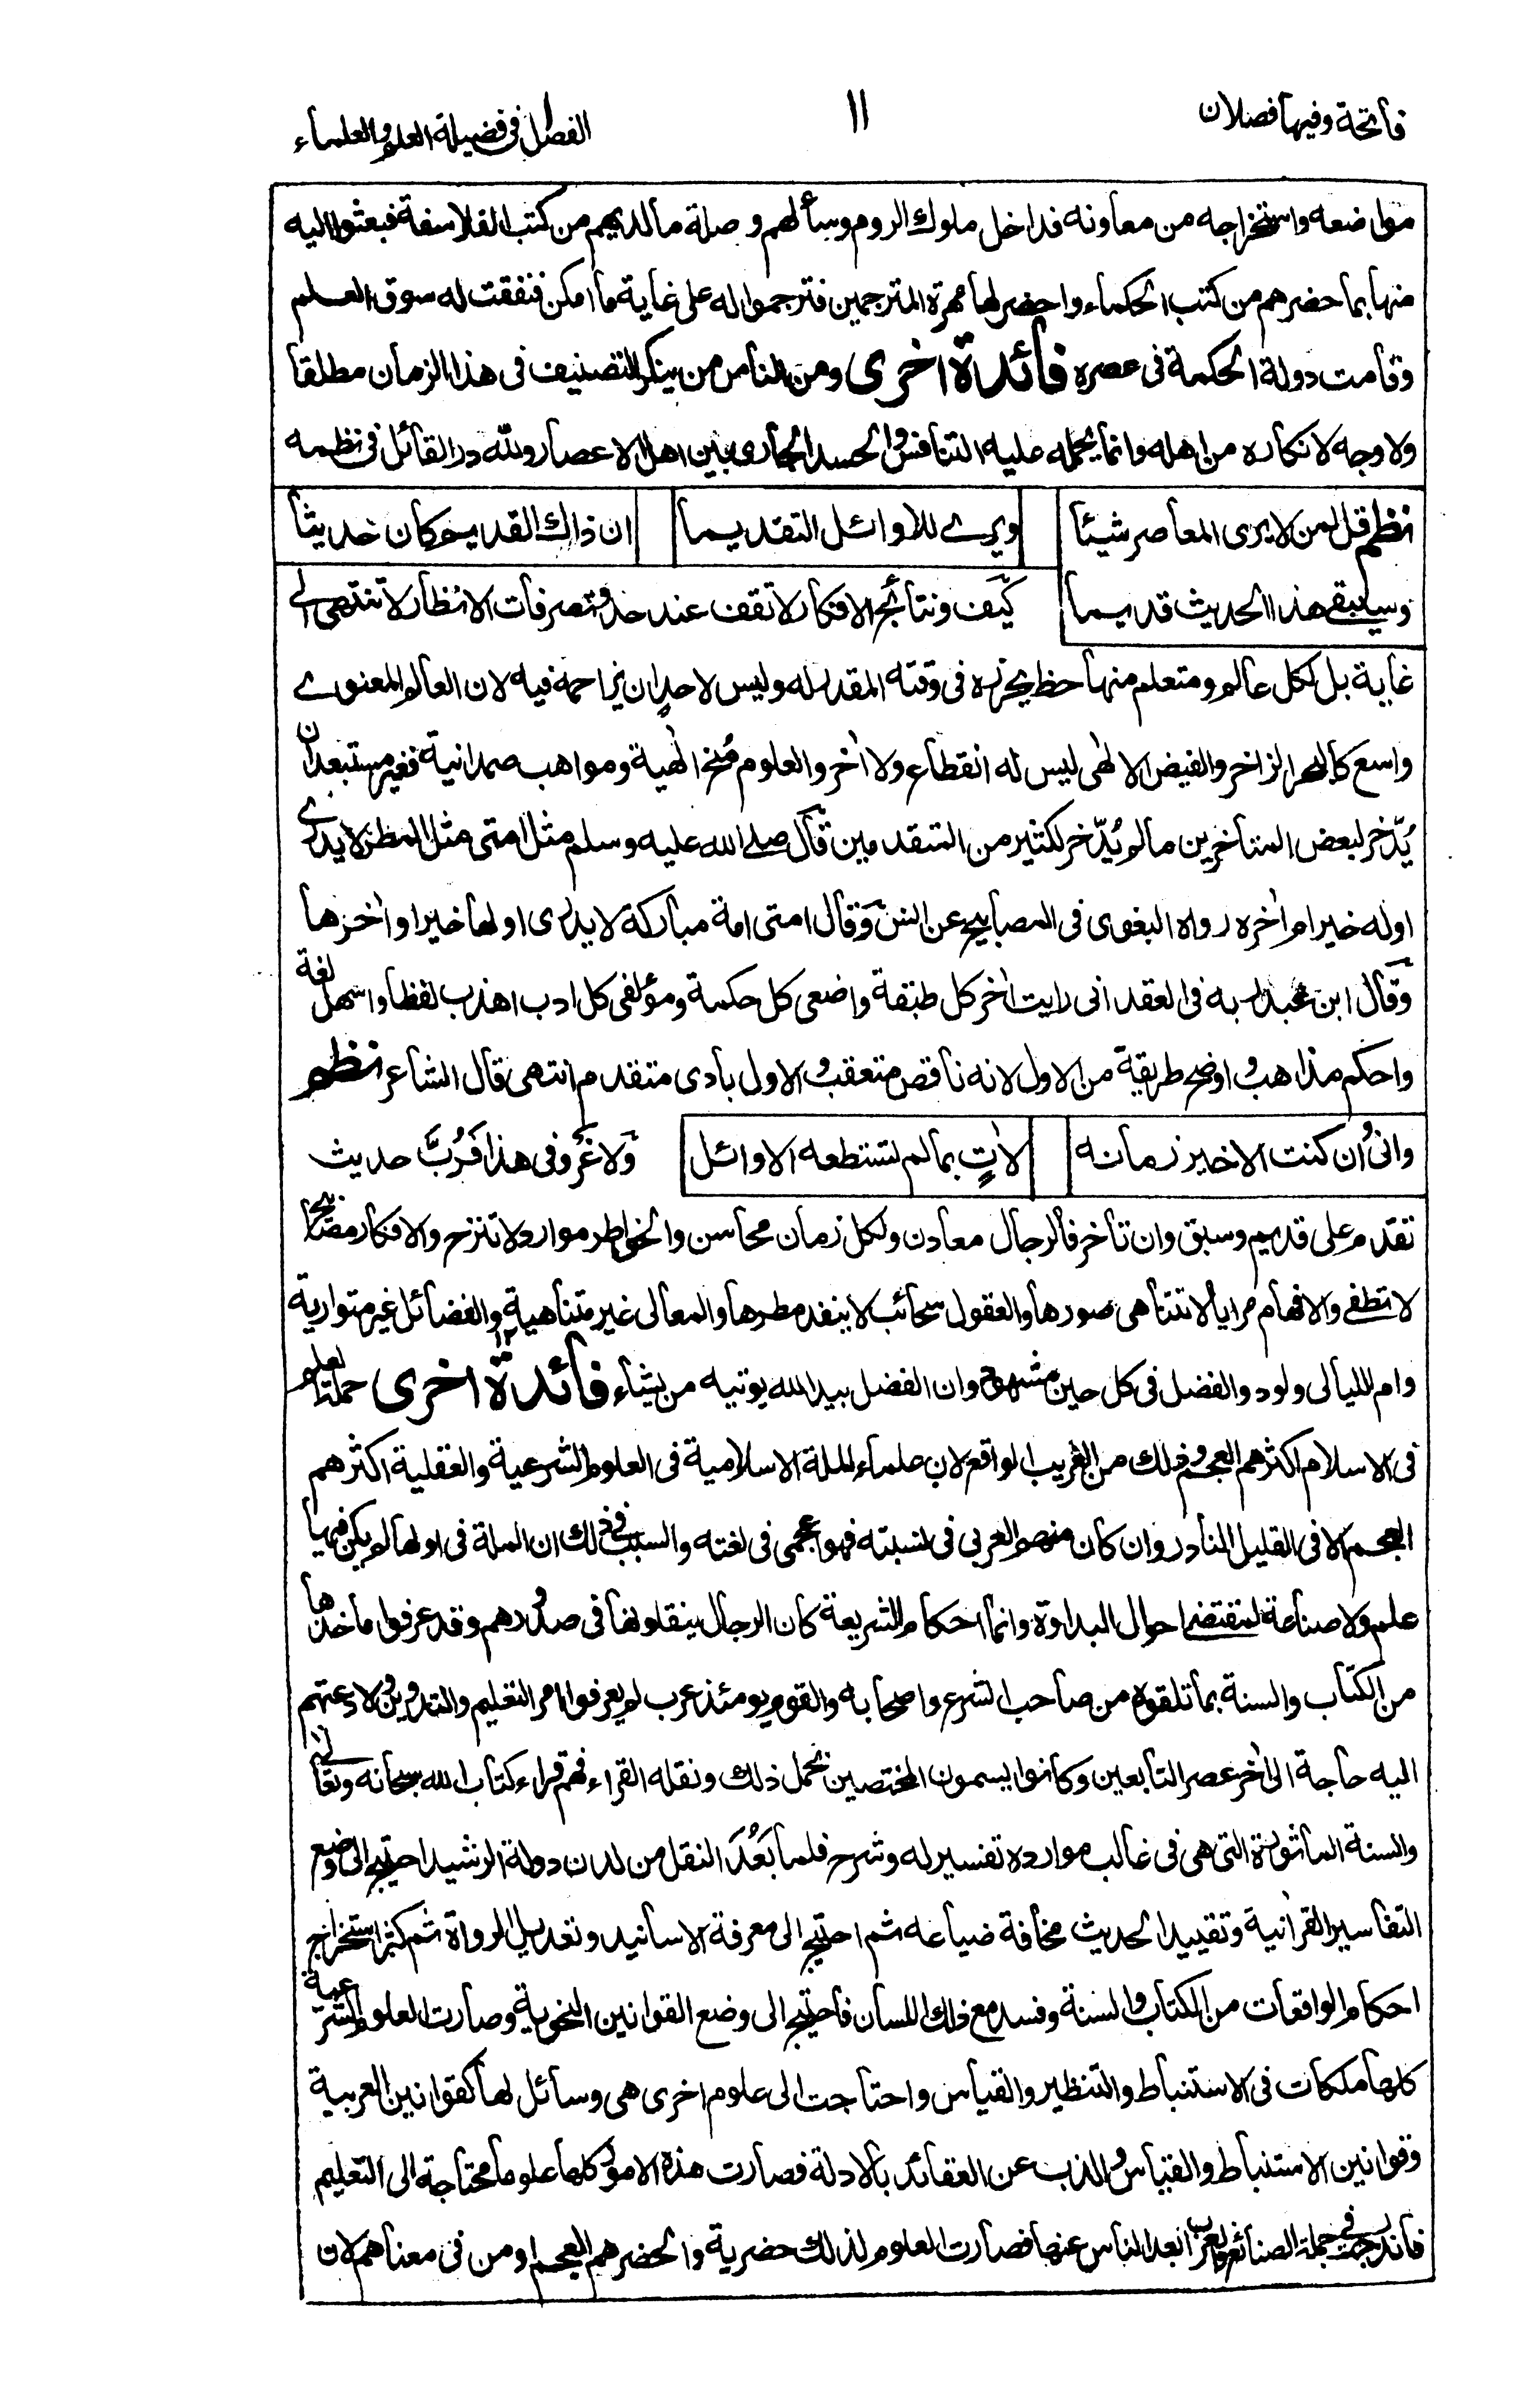 فاتحة وفيها فصلان
١١
الفصل في فضيلة العلم والعلماء
مواضعه واستخراجه من معاونه فداخل ملوك الروم وسألهم وصلة ما لديهم من كتب الفلاسفة فبعثوا اليه
منها بما حضرهم من كتب الحكماء واحضر لها مهرة المترجمين فترجموا له على غاية ما امكن فنفقت له سوق العلم
وقامت دولة الحكمة في عصره فائدة اخرى ومن الناس من ينكر التصنيف في هذا الزمان مطلقا
ولا وجه لانكاره من اهله وانما يحمله عليه التنافس والحسد الجاري بين اهل الاعصار ولله در القائل في نظمه
نظم قل لمن لا يرى المعاصر شيئا
ويرى للاوائل التقديما
ان ذاك القديم كان حديثا
وسيبقى هذا الحديث قديما
كيف ونتائج الافكار لا تقف عند حد وتصرفات الانظار لا تنتهي الى
غاية بل لكل عالم ومتعلم منها حظ يحرزه في وقته المقدر له وليس لاحد ان يزاحمه فيه لان العالم المعنوي
واسع كالبحر الزاخر والفيض الالهي ليس له انقطاع ولا آخر والعلوم منح الهية ومواهب صمدانية فغير مستبعد ان
يُدّخر لبعض المتأخرين ما لم يُدّخر لكثير من المتقدمين قال صلى الله عليه وسلم مثل امتي مثل المطر لا يدرى
اوله خير ام آخره رواه البغوي في المصابيح عن انس وقال امتي امة مباركة لا يدرى اولها خير او آخرها
وقال ابن عبد ربه في العقد اني رايت آخر كل طبقة واضعي كل حكمة ومؤلفي كل ادب اهذب لفظا واسهل لغة
واحكم مذاهب واوضح طريقة من الاول لانه ناقص متعقب والاول بادى متقدم انتهى قال الشاعر نظم
واني وان كنت الاخير زمانه
لآتٍ بما لم تستطعه الاوائل
ولا غرو في هذا فَرُبَّ حديث
تقدم على قديم وسبق وان تأخر فالرجال معادن ولكل زمان محاسن والخواطر موارد لا تنزح والافكار مصابيح
لا تطفى والافهام مرايا لا تتناهى صورها والعقول سحائب لا ينفد مطرها والمعالي غير متناهية والفضائل غير متوارية
وام الليالي ولود والفضل في كل حين مشهود وان الفضل بيد الله يوتيه من يشاء فائدة اخرى حملة العلم
في الاسلام اكثرهم العجم وذلك من الغريب الواقع لان علماء الملة الاسلامية في العلوم الشرعية والعقلية اكثرهم
العجم الا في القليل النادر وان كان منهم العربي في نسبته فهو عجمي في لغته والسبب في ذلك ان الملة في اولها لم يكن فيها
علم ولا صناعة لمقتضى احوال البداوة وانما احكام الشريعة كان الرجال ينقلونها في صدورهم وقد عرفوا مأخذها
من الكتاب والسنة بما تلقوه من صاحب الشرع واصحابه والقوم يومئذ عرب لم يعرفوا امر التعليم والتدوين ولا دعتهم
اليه حاجة الى آخر عصر التابعين وكانوا يسمون المختصين بحمل ذلك ونقله القراء فهم قراء كتاب الله سبحانه وتعالى
والسنة المأثورة التي هي في غالب موارده تفسير له وشرح فلما بَعُدَ النقل من لدن دولة الرشيد احتيج الى وضع
التفاسير القرآنية وتقييد الحديث مخافة ضياعه ثم احتيج الى معرفة الاسانيد وتعديل الرواة ثم كثر استخراج
احكام الواقعات من الكتاب والسنة وفسد مع ذلك اللسان فاحتيج الى وضع القوانين النحوية وصارت العلوم الشرعية
كلها ملكات في الاستنباط والتنظير والقياس واحتاجت الى علوم اخرى هي وسائل لها كقوانين العربية
وقوانين الاستنباط والقياس والذب عن العقائد بالادلة فصارت هذه الامور كلها علوما محتاجة الى التعليم
فاندرجت في جملة الصنائع والعرب ابعد الناس عنها فصارت العلوم لذلك حضرية والحضر هم العجم او من في معناهم لان